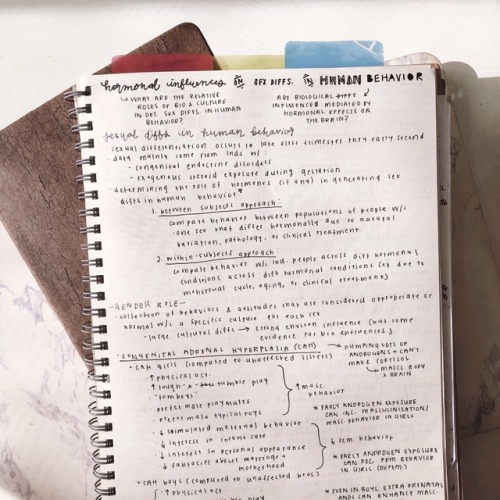 hormonal influences on SEX DIFFS. in HUMAN BEHAVIOR
↳ WHAT ARE THE RELATIVE
ROLES OF BIO & CULTURE
IN DET. SEX DIFFS. IN HUMAN
BEHAVIOR?
ARE BIOLOGICAL DIFFS
INFLUENCED MEDIATED BY
HORMONAL EFFECTS ON
THE BRAIN?
sexual diffs in human behavior
· sexual differentiation occurs in late first trimester thru early second
· data mainly come from inds w/:
- congenital endocrine disorders
- exogenous steroid exposure during gestation
· determining the role of hormones (if any) in generating sex
diffs in human behavior
1. between subjects approach:
compare behavior between populations of people w/i
one sex that differ hormonally due to natural
variation, pathology, or clinical treatment
2. within-subjects approach:
compare behavior w/i ind. people across diff hormonal
conditions across diff hormonal conditions (ex due to
menstrual cycle, aging, or clinical treatment)
-GENDER ROLE-
· collection of behaviors & attitudes that are considered appropriate or
normal w/i a specific culture for each sex
- large cultural diffs → strong environ influence (but some
evidence for bio influences)
· CONGENITAL ADRENAL HYPERPLASIA (CAH) → pumping lots of
androgens & can't
make cortisol
↳ mascs. body
& brain
· CAH girls (compared to unaffected sisters)
↑ physical act.
↑ rough-&-tumble play
"tomboys"
prefer male playmates
prefer male typical toys
↑ masc.
behavior
* EARLY ANDROGEN EXPOSURE
CAN INC. MASCULINIZATION/
MASC BEHAVIOR IN GIRLS
↓ stimulated maternal behavior
↓ interest in infant care
↓ interest in personal appearance
↓ fantasies about marriage &
motherhood
↓ fem behavior
* EARLY ANDROGEN EXPOSURE
CAN DEC. FEM BEHAVIOR
IN GIRLS (DEFEM.)
· CAH boys (compared to unaffected bros)
↑ physical act
play
* EVEN IN BOYS, EXTRA PRENATAL
AND CAN ENHANCE MASC